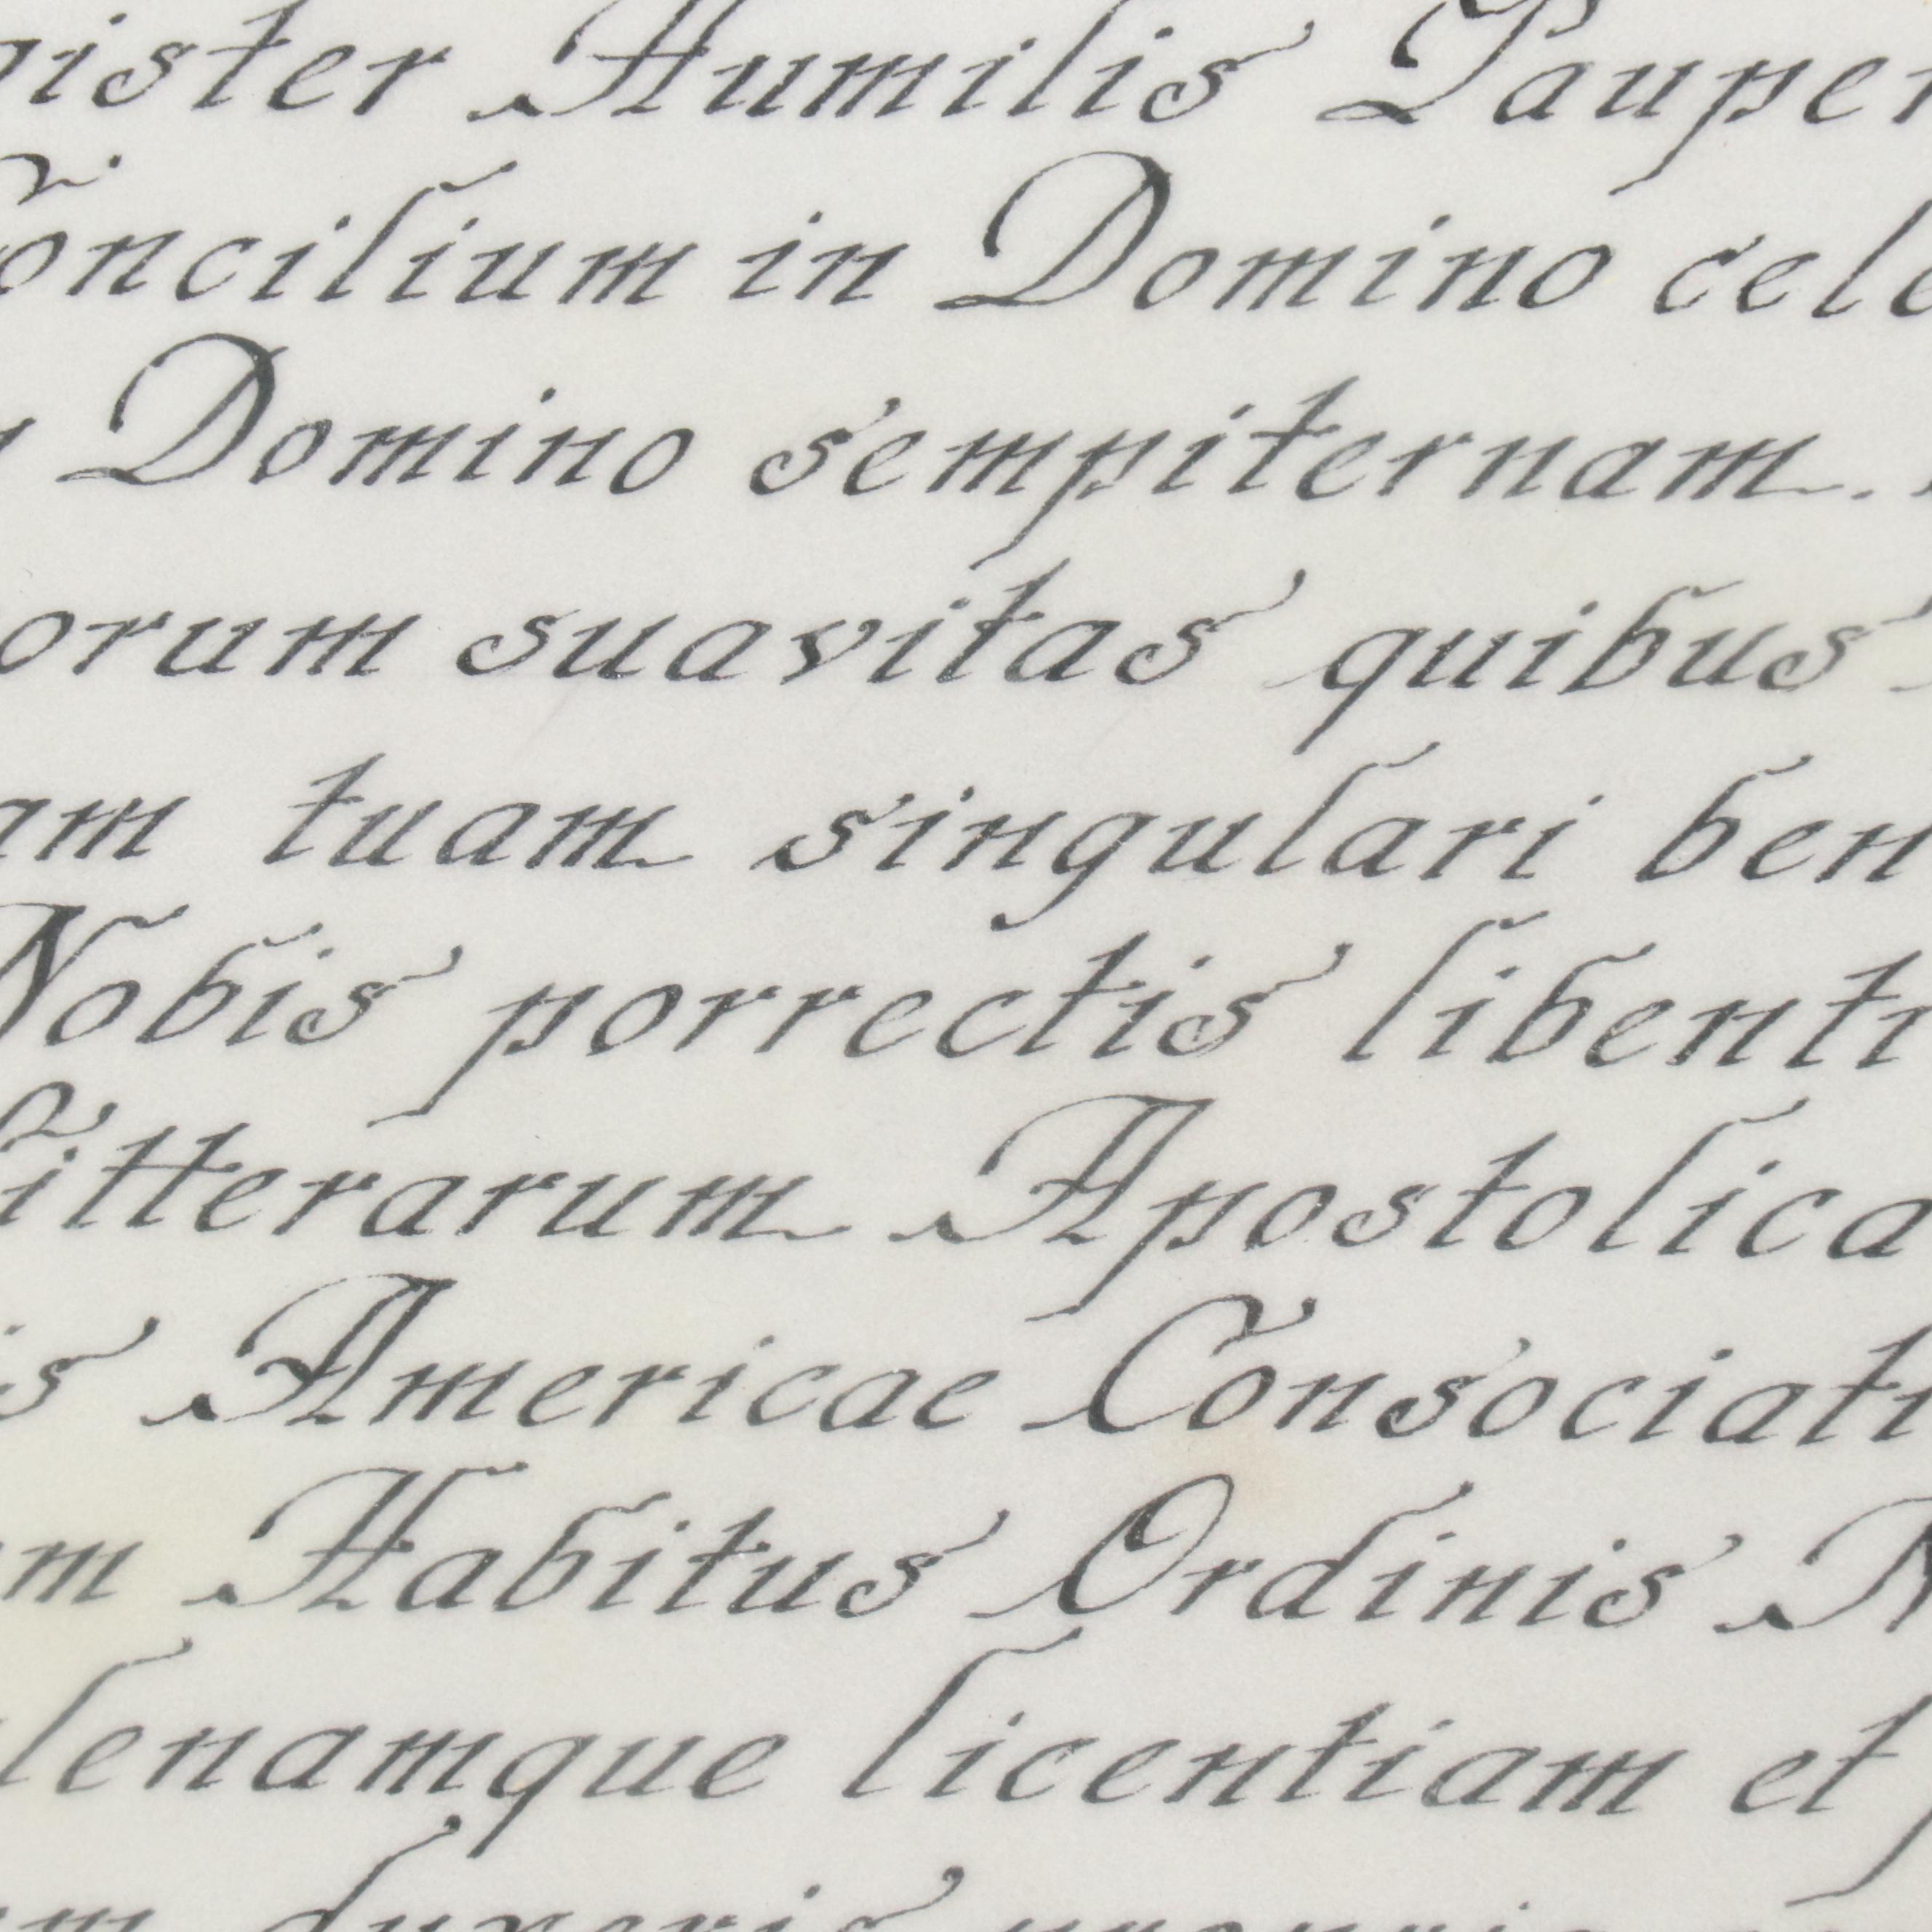 ister Humilis Pauper
oncilium in Domino cele
Domino sempiternam.
orum suavitas quibus
am tuam singulari ben
Nobis porrectis libenti
Litterarum Apostolica
is Americae Consociati
m Habitus Ordinis
lenamque licentiam et
duxeris